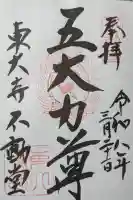 奉拝
令和八年
三月二十日
五大力尊
東大寺 不動堂